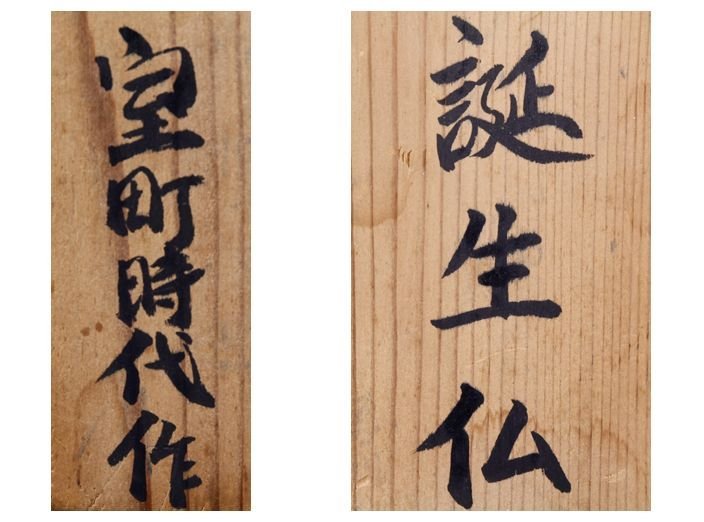 誕生仏
室町時代作